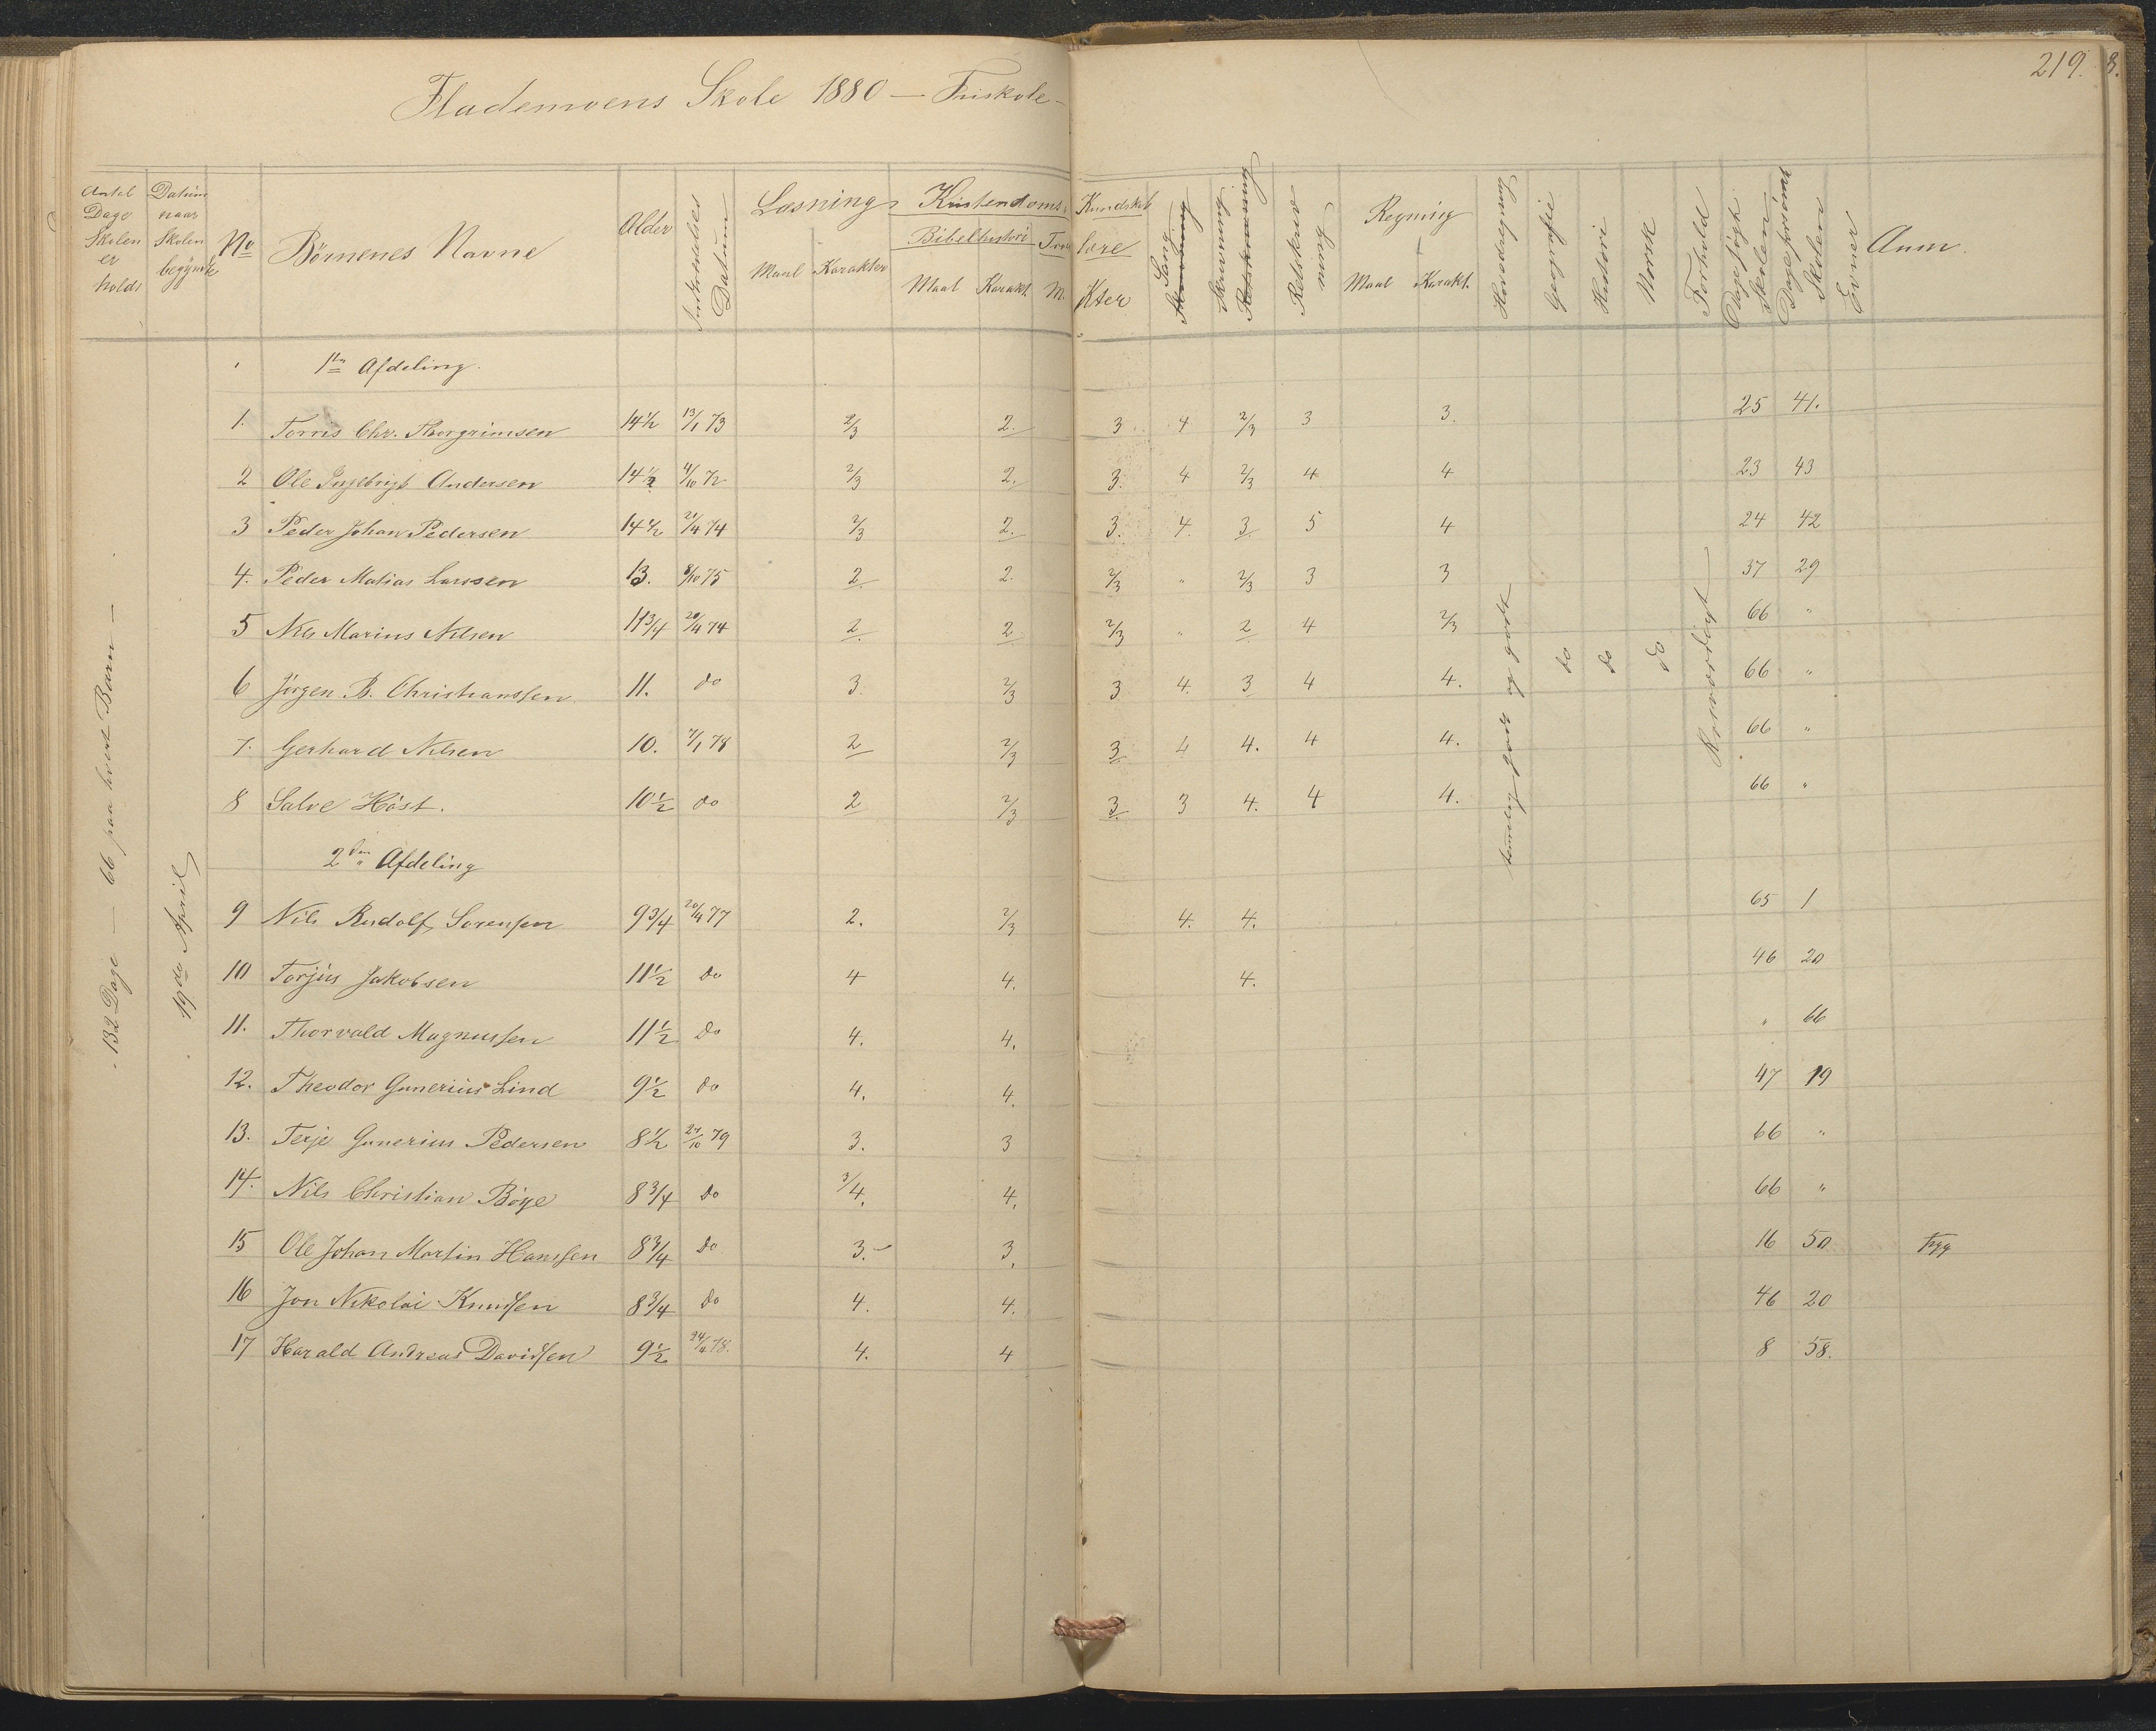 219.
Flademoens Skole 1880 — Friskole —
Antal Dage Skolen er holdt
Datum naar Skolen begyndte
No
Børnenes Navne
Alder
Indskrivelses Datum
Læsning Maal Karakter
Kristendoms Kundskab
Bibelhistorie Maal Karakt.
Troeslære M. Kter
Sang
Skrivning
Retskrivning
Regning Maal Karakt.
Hovedregning
Geografie
Historie
Norsk
Forhold
Dage søgt Skolen
Dage forsømt Skolen
Evner
Anm.
132 Dage — 66 paa hvert Barn —
19de April
1ste Afdeling.
1. Torris Chr. Thorgrimsen 14½ 13/1 73 2/3 2. 3 4 2/3 3 3. 25 41.
2 Ole Ingebrigt Andersen 14½ 4/10 72 2/3 2. 3. 4 2/3 4 4 23 43
3 Peder Johan Pedersen 14½ 21/4 74 2/3 2. 3. 4 3 5 4 24 42
4. Peder Matias Larssen 13. 8/10 75 2. 2. 2/3 " 2/3 3 3 37 29
5 Nils Marius Nilsen 11¾ 20/4 74 2. 2 2/3 " 2 4 2/3 66 "
6 Jörgen B. Christianssen 11. do 3. 2/3 3 4. 3 4 4. 66 "
7. Gerhard Nilsen 10. 7/1 78 2 2/3 3 4 4. 4 4. 66 "
8 Salve Höst. 10½ do 2 2/3 3. 3 4. 4 4. 66 "
temelig godt og godt
do
do
do
Roesværdigt
2den Afdeling
9 Nils Rudolf Sorensen 9¾ 20/4 77 2. 2/3 4. 4. 65 1
10 Torjus Jakobsen 11½ do 4 4. 4. 46 20
11. Thorvald Magnussen 11½ do 4. 4. " 66
12. Theodor Gunerius Lind 9½ do 4. 4. 47 19
13. Terje Gunerius Pedersen 8½ 27/10 79 3. 3 66 "
14. Nils Christian Böye 8¾ do 3/4. 4. 66 "
15 Ole Johan Martin Hanssen 8¾ do 3.- 3. 16 50
16 Jon Nikolai Knudsen 8¾ do 4. 4. 46 20
17 Harald Andreas Davidsen 9½ 24/4 78. 4. 4 8 58.